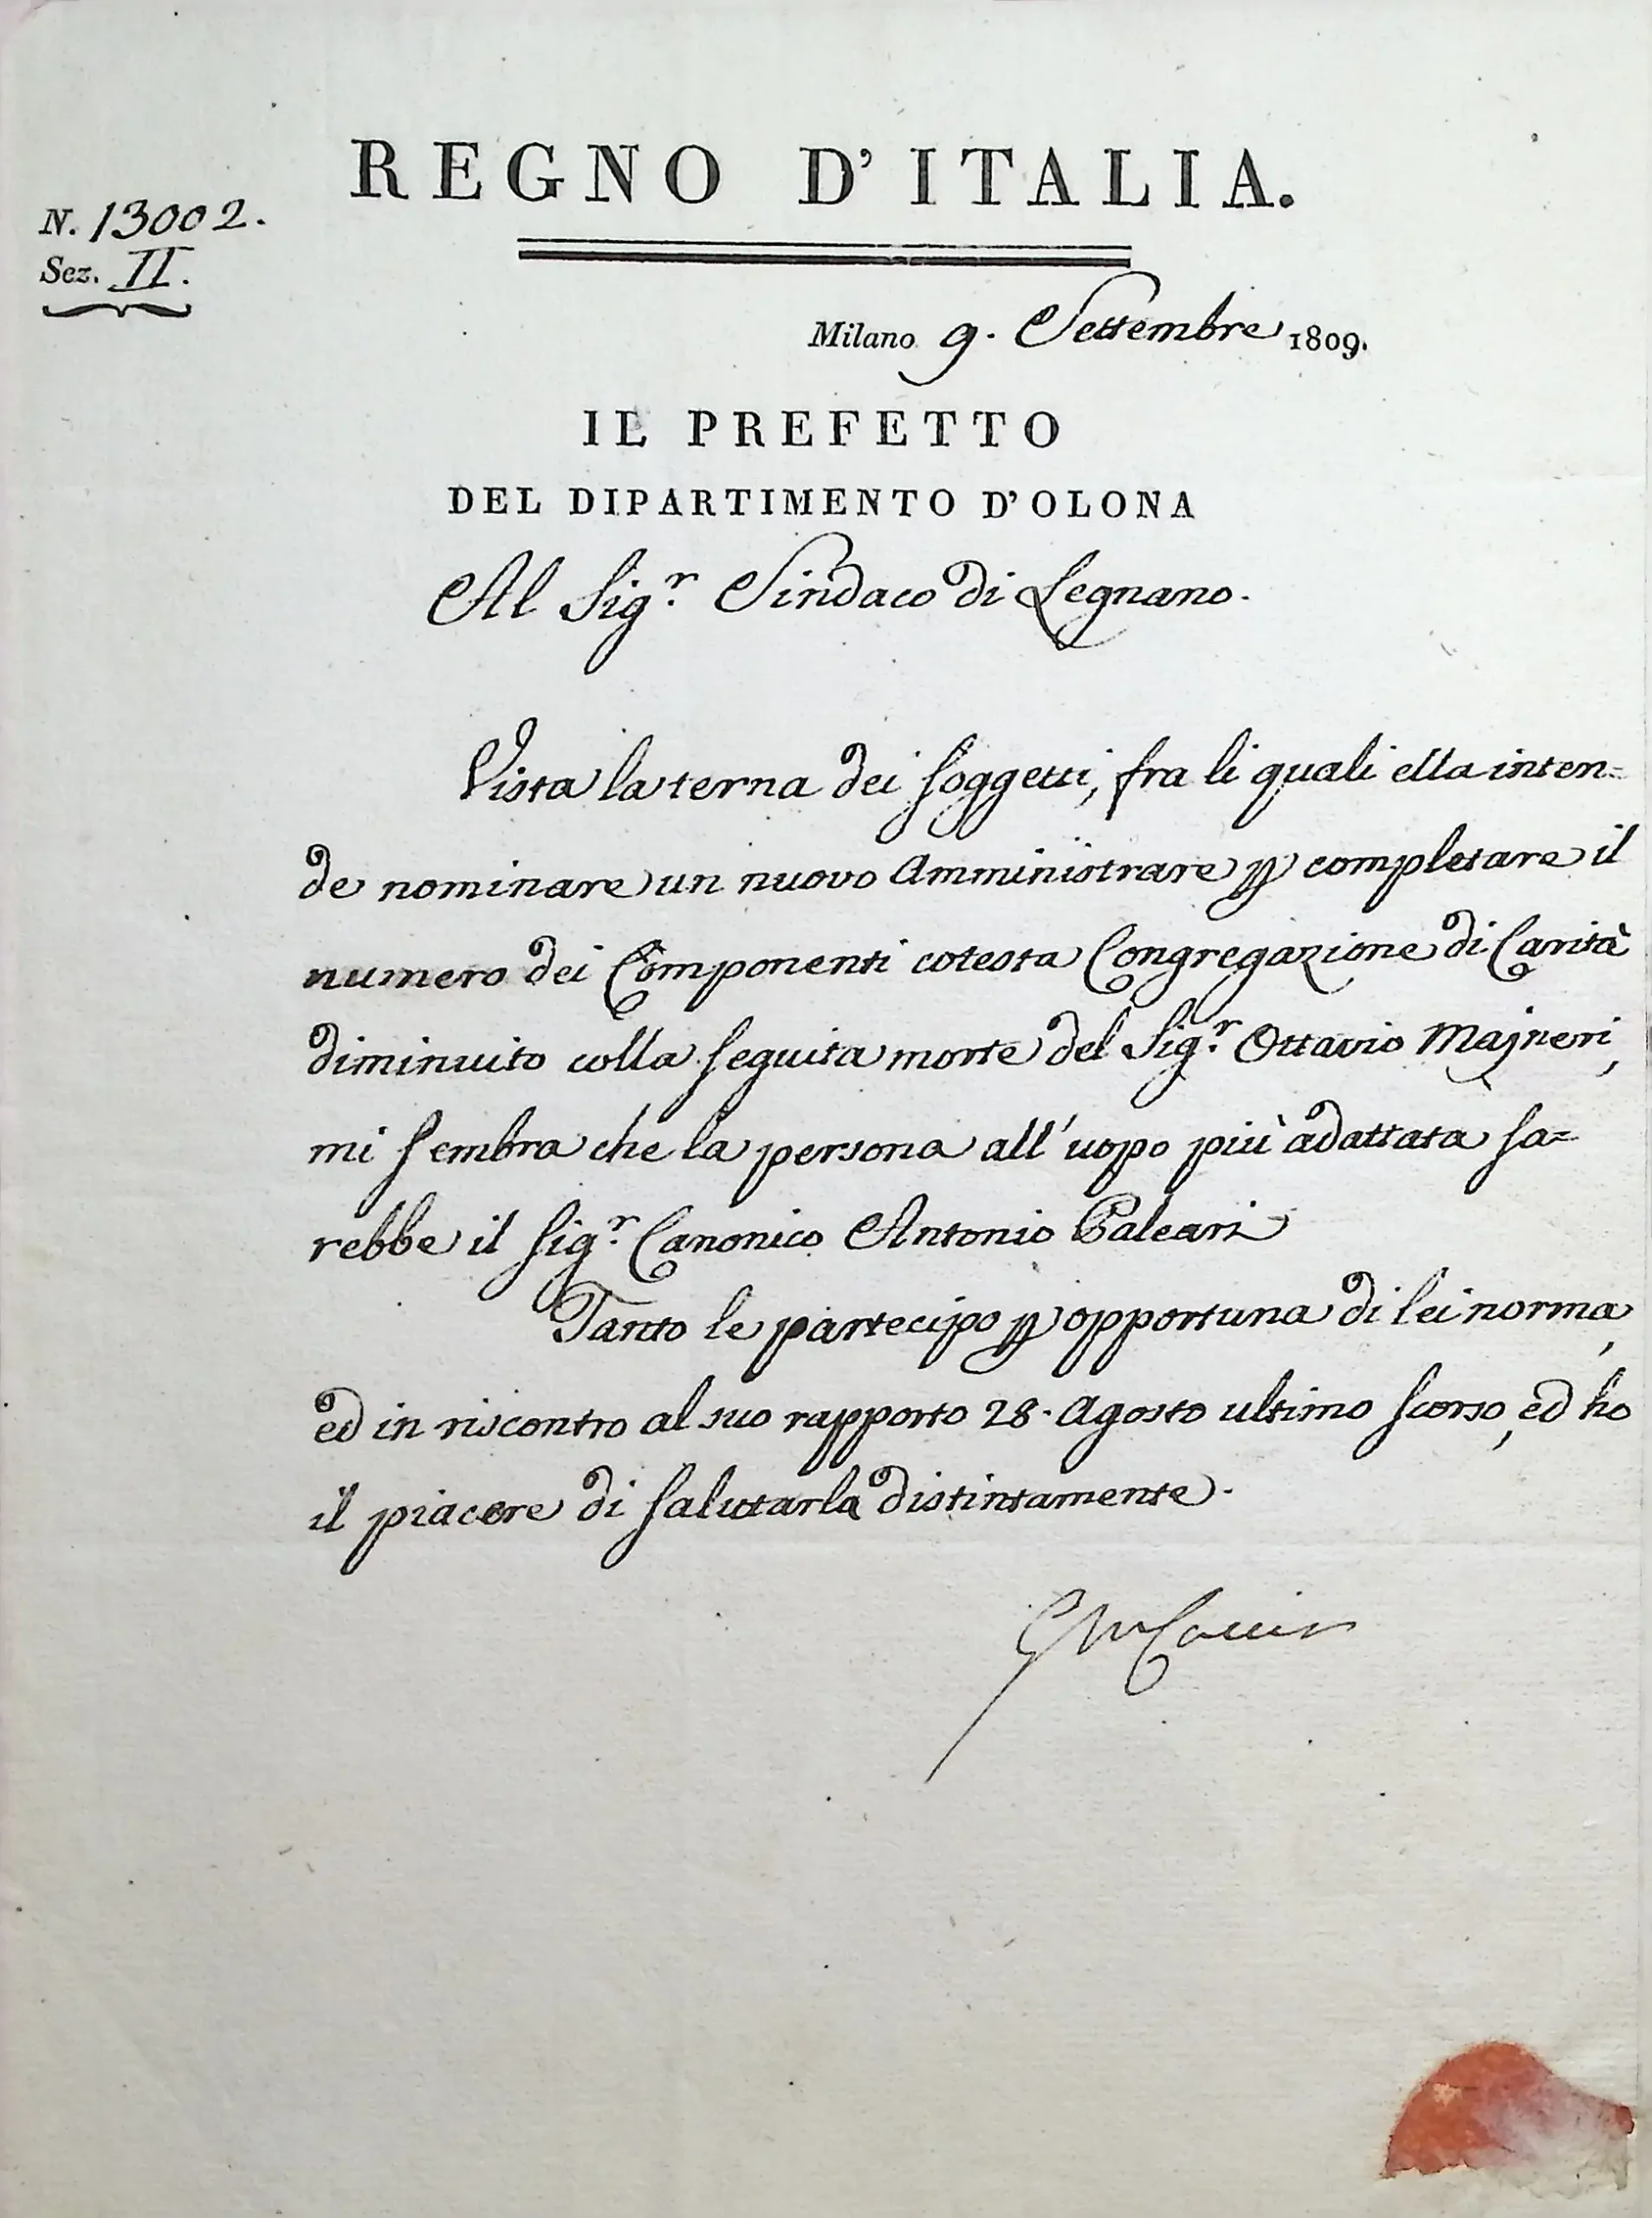 REGNO D'ITALIA.
N. 13002.
Sez. II.
Milano 9. Settembre 1809.
IL PREFETTO
DEL DIPARTIMENTO D'OLONA
Al Sig.r Sindaco di Legnano.
Vista la terna dei soggetti, fra li quali ella inten=
de nominare un nuovo Amministrare p completare il
numero dei Componenti cotesta Congregazione di Carità
diminuito colla seguita morte del Sig.r Ottavio Majneri,
mi sembra che la persona all'uopo più adattata sa=
rebbe il Sig.r Canonico Antonio Paleari
Tanto le partecipo p opportuna di lei norma,
ed in riscontro al suo rapporto 28. Agosto ultimo scorso, ed ho
il piacere di salutarla distintamente.